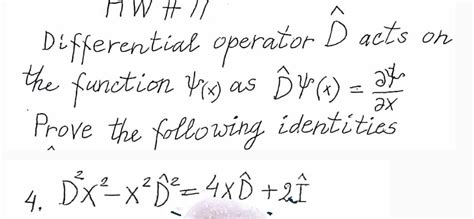 HW # 11
Differential operator D̂ acts on
the function Ψ(x) as D̂Ψ(x) = ∂Ψ/∂x
Prove the following identities
4. D̂²x² - x²D̂² = 4xD̂ + 2Î